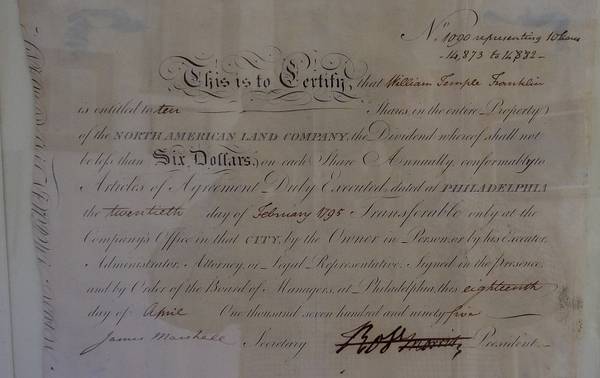 No. 1090 representing 10 Shares
14,873 to 14,882
This is to Certify, that William Temple Franklin
is entitled to ten Shares, in the entire Property
of the NORTH AMERICAN LAND COMPANY, the Dividend whereof shall not
be less than Six Dollars, on each Share Annually, conformably to
Articles of Agreement Duly Executed, dated at PHILADELPHIA
the twentieth day of February 1795 Transferable only at the
Company's Office in that CITY, by the Owner in Person, or by his Executor,
Administrator, Attorney, or Legal Representative. Signed in the presence
and by Order of the Board of Managers, at Philadelphia, this eighteenth
day of April One thousand seven hundred and ninety five
James Marshall Secretary Rob Morris President